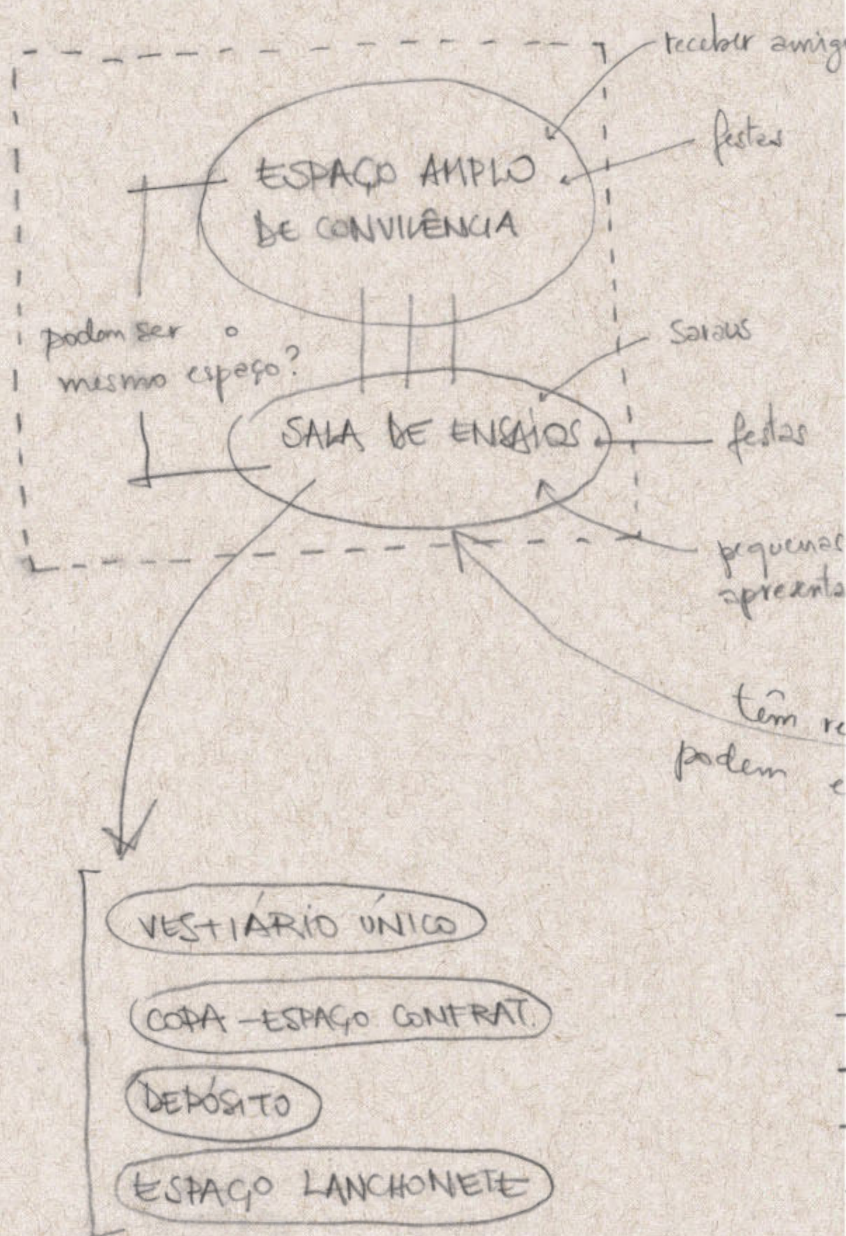 receber amig
festas
ESPAÇO AMPLO
DE CONVIVÊNCIA
podem ser o
mesmo espaço?
saraus
SALA DE ENSAIOS
festas
pequenas
apresenta
têm re
podem e
VESTIÁRIO ÚNICO
COPA - ESPAÇO CONFRAT.
DEPÓSITO
ESPAÇO LANCHONETE